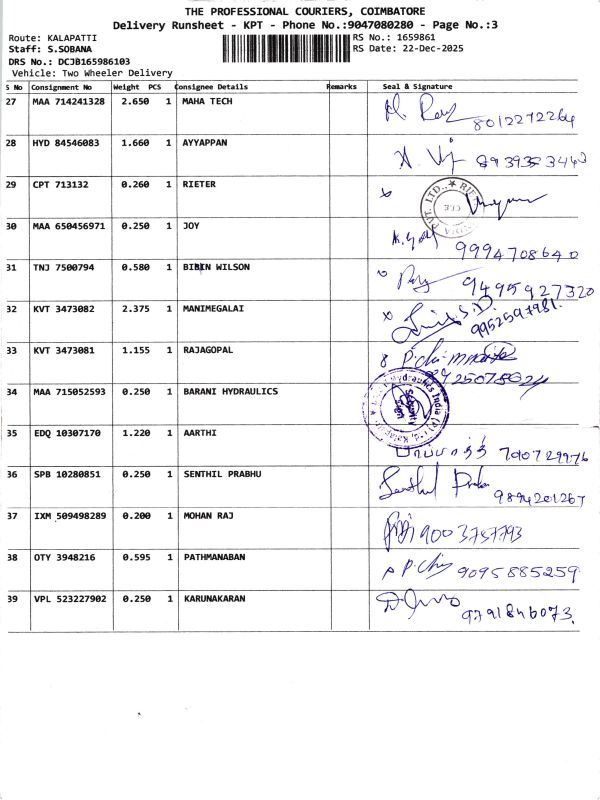 THE PROFESSIONAL COURIERS, COIMBATORE
Delivery Runsheet - KPT - Phone No.:9047080280 - Page No.:3
Route: KALAPATTI RS No.: 1659861
Staff: S.SOBANA RS Date: 22-Dec-2025
DRS No.: DCJB165986103
Vehicle: Two Wheeler Delivery
S No Consignment No Weight PCS Consignee Details Remarks Seal & Signature
27 MAA 714241328 2.650 1 MAHA TECH
8012272264
28 HYD 84546083 1.660 1 AYYAPPAN
29 CPT 713132 0.260 1 RIETER
30 MAA 650456971 0.250 1 JOY
9994708640
31 TNJ 7500794 0.580 1 BIBIN WILSON
9495927320
32 KVT 3473082 2.375 1 MANIMEGALAI
9952597981.
33 KVT 3473081 1.155 1 RAJAGOPAL
34 MAA 715052593 0.250 1 BARANI HYDRAULICS
35 EDQ 10307170 1.220 1 AARTHI
36 SPB 10280851 0.250 1 SENTHIL PRABHU
Senthil Prabu 9894201267
37 IXM 509498289 0.200 1 MOHAN RAJ
9003757793
38 OTY 3948216 0.595 1 PATHMANABAN
9095885259
39 VPL 523227902 0.250 1 KARUNAKARAN
9791846073.